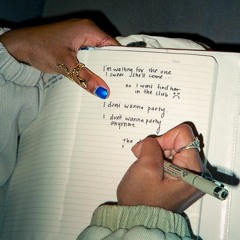 I'm waiting for the one
I swear she'll come...
no I wont find her
in the club
I dont wanna party
I dont wanna party
anymore
The